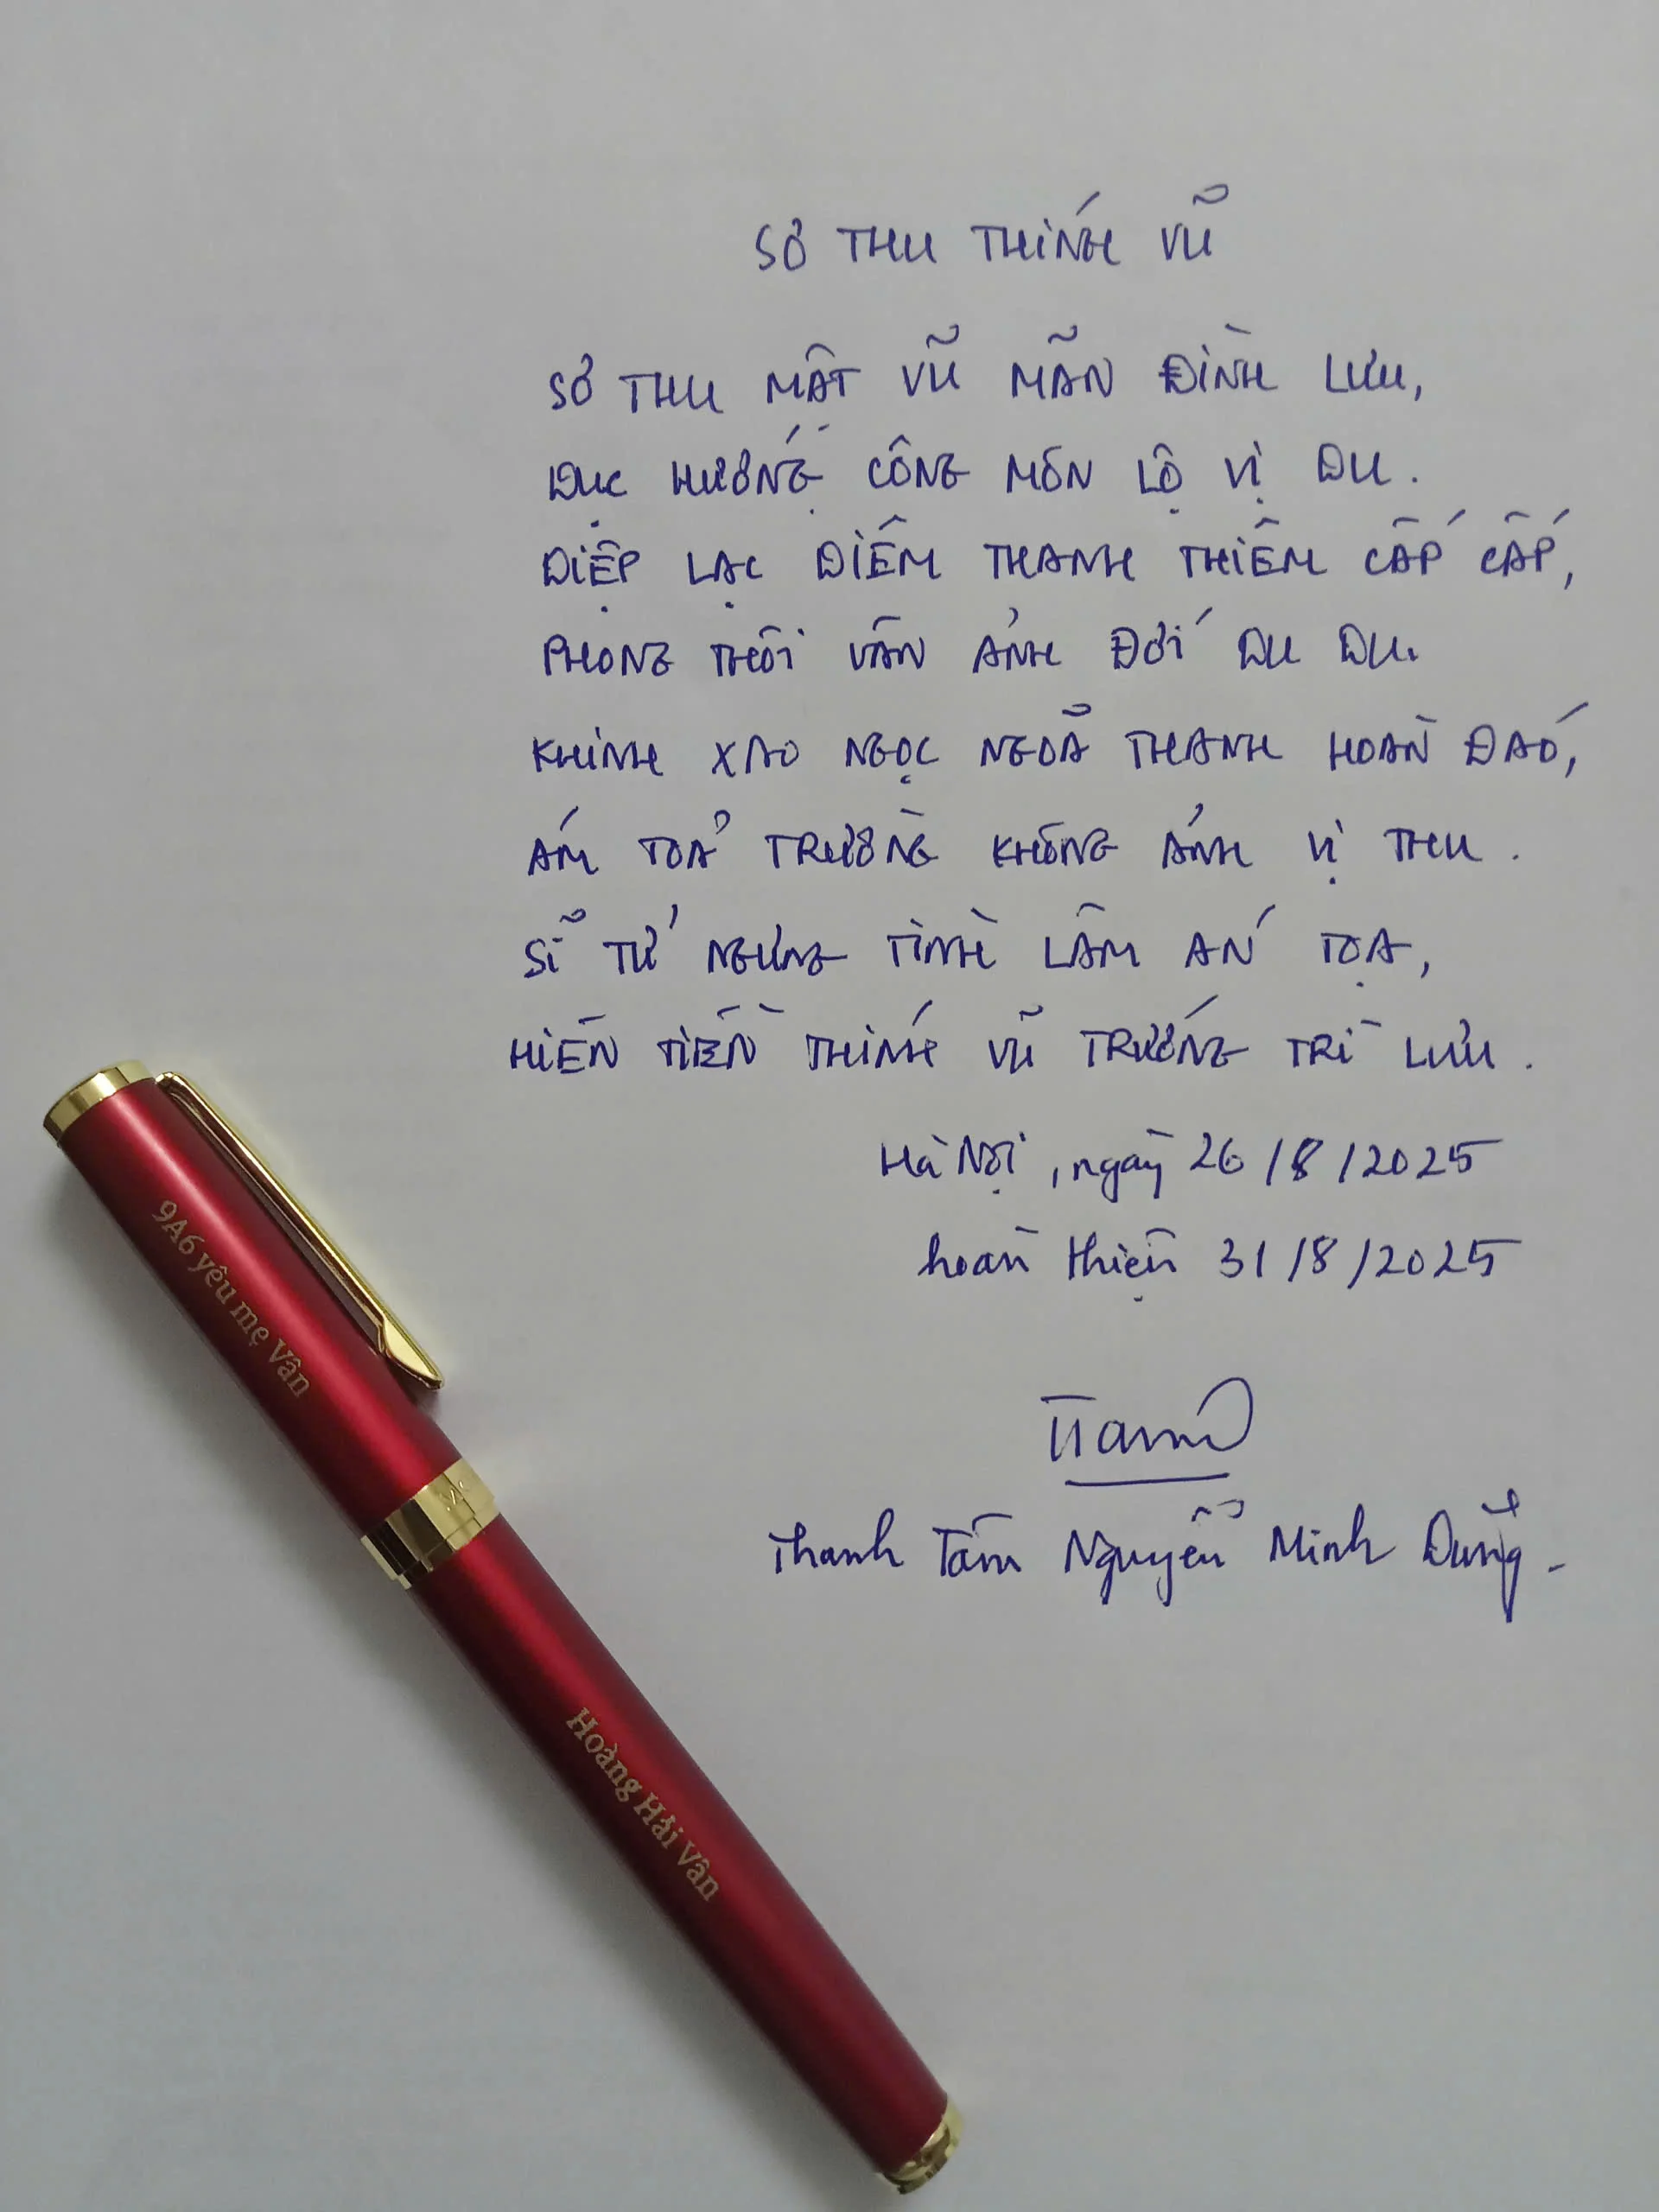 SƠ THU THÍNH VŨ
SƠ THU MẬT VŨ MÃN ĐÌNH LƯU,
DỤC HƯỚNG CÔNG MÔN LỘ VỊ DU.
DIỆP LẠC DIÊM THANH THIÊM CẤP CẤP,
PHONG THÔI VÂN ẢNH ĐỚI DU DU.
KHINH XAO NGỌC NGOÃ THANH HOÀN ĐÁO,
ÁM TOẢ TRƯỜNG KHÔNG ẢNH VỊ THU.
SĨ TỬ NGƯNG TÌNH LÂM ÁN TỌA,
HIÊN TIỀN THÍNH VŨ TRƯỚNG TRÌ LƯU.
Hà Nội, ngày 26/8/2025
hoàn thiện 31/8/2025
Thanh Tâm Nguyễn Minh Dũng.
9A6 yêu mẹ Vân
Hoàng Hải Vân